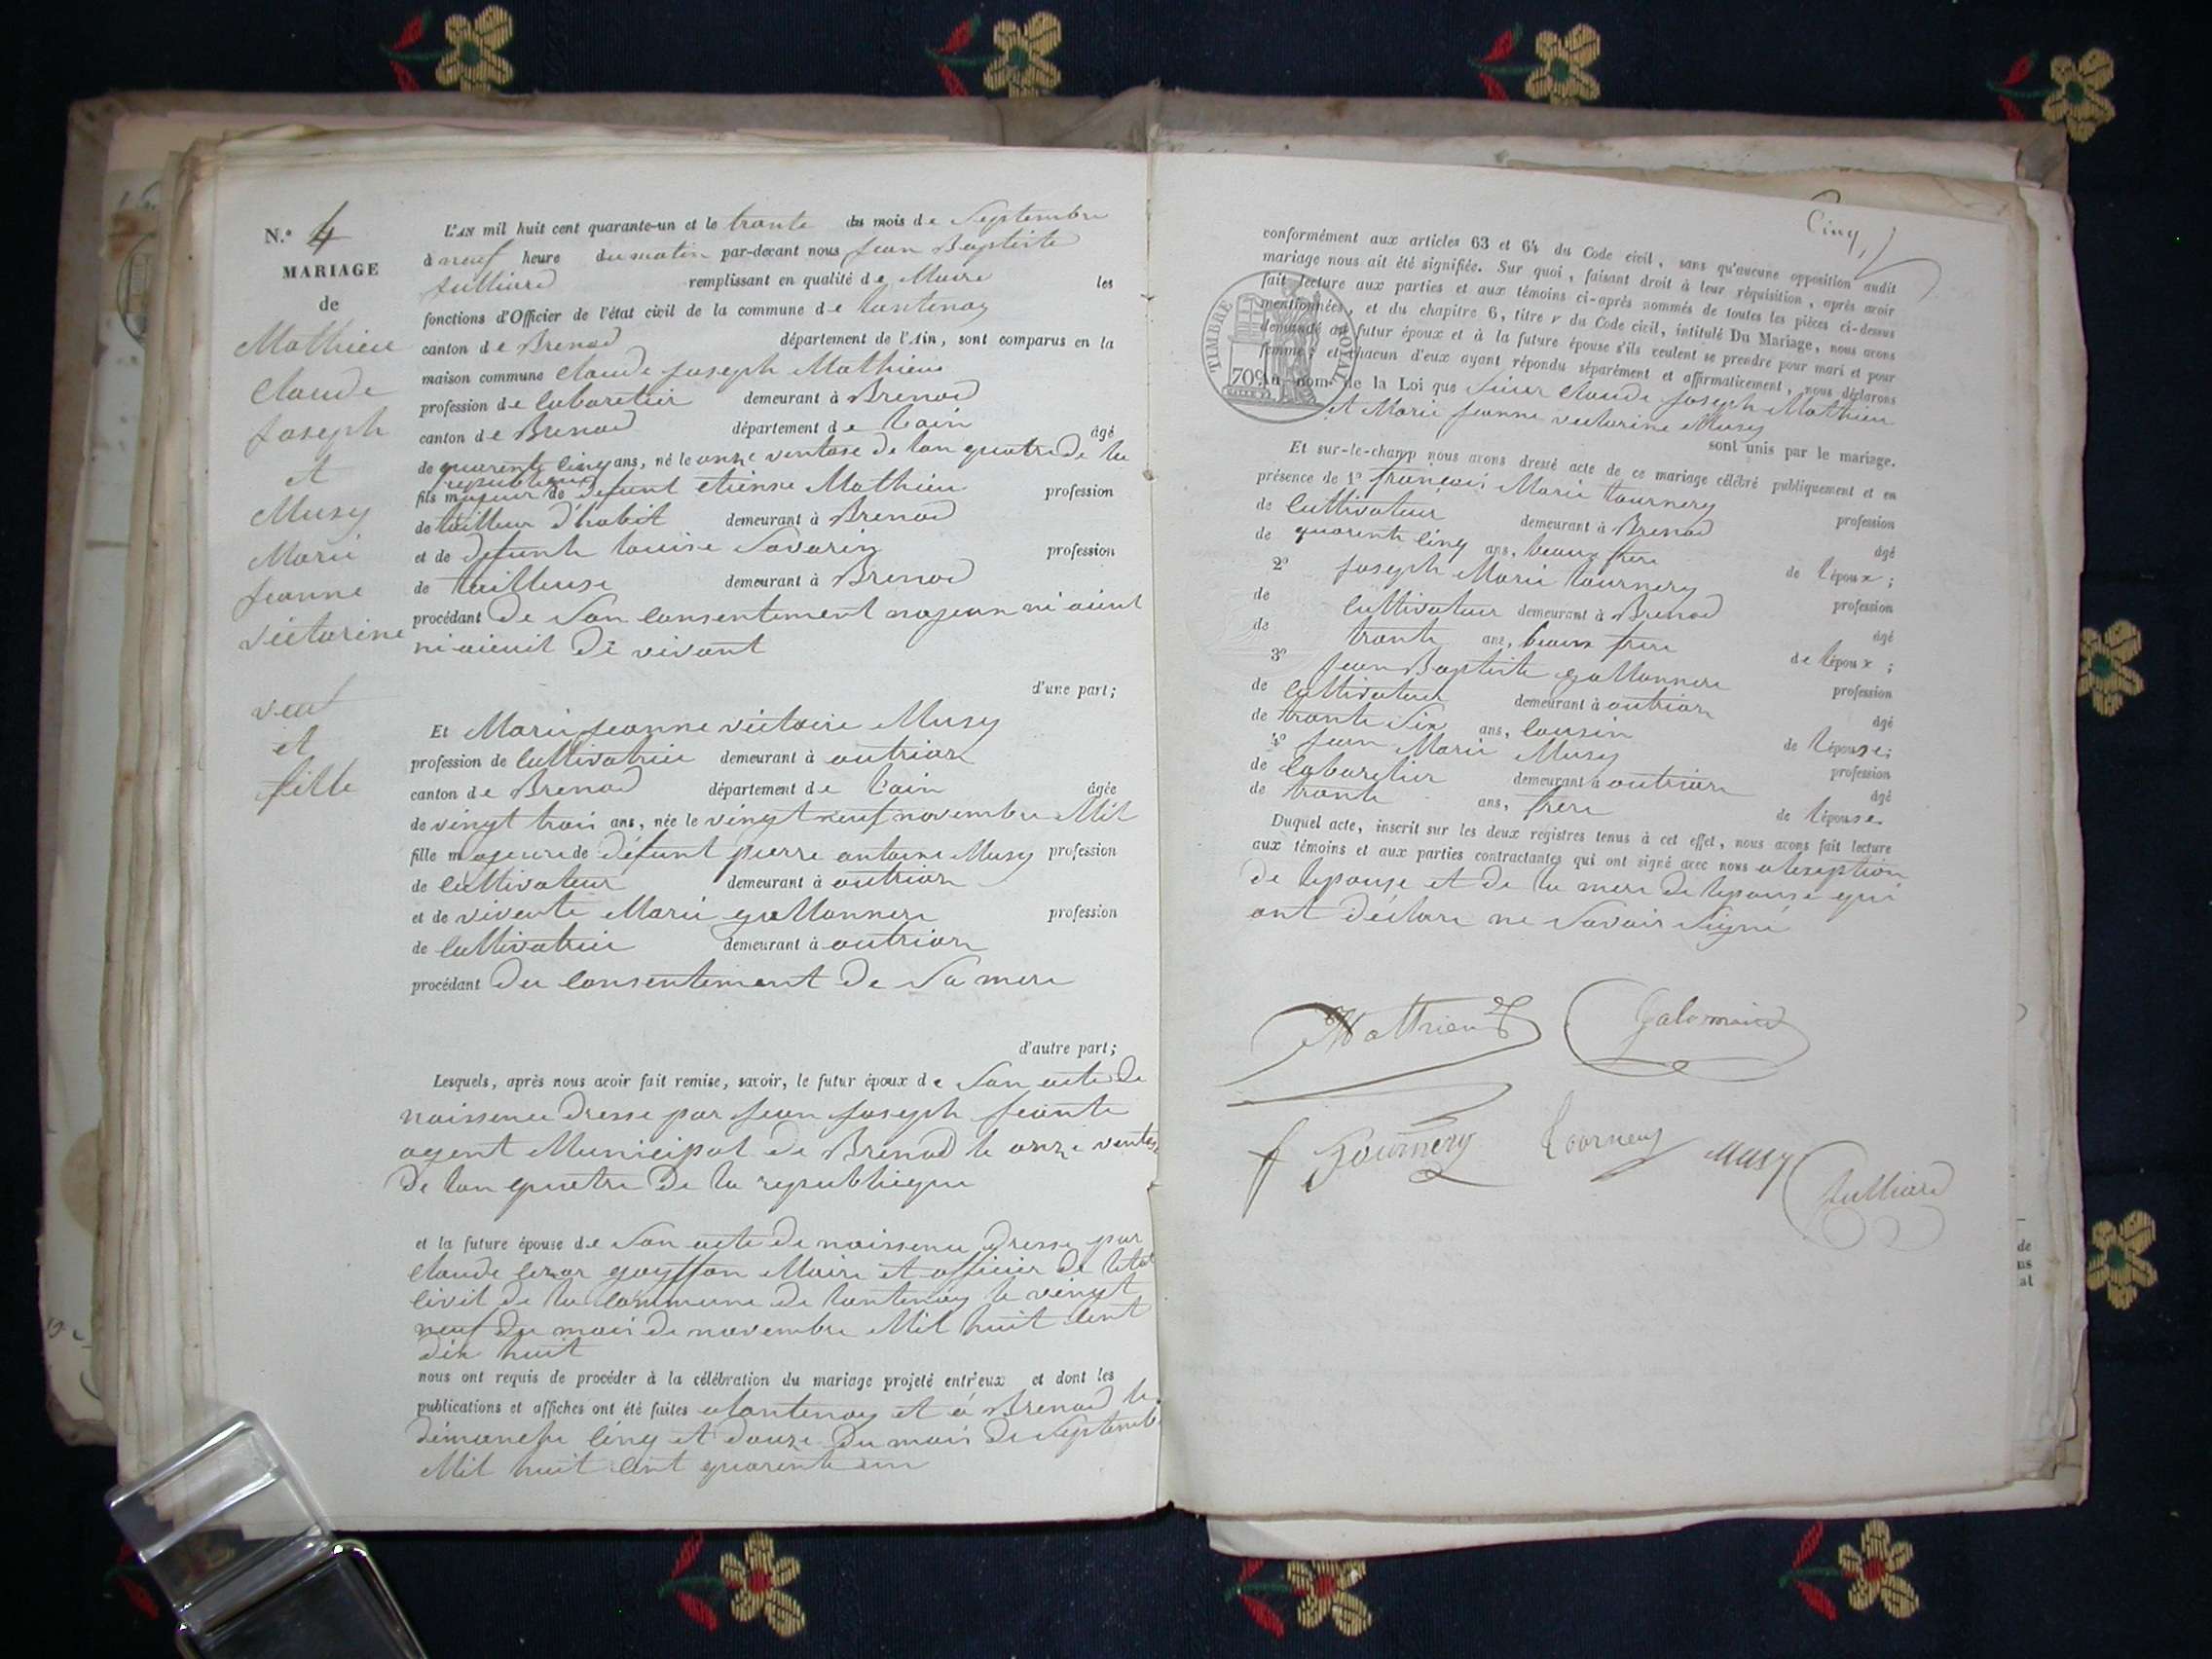 N.o 4
MARIAGE
de
Mathieu
Claude
Joseph
et
Musy
Marie
Jeanne
victorine
veuf
et
fille
L'AN mil huit cent quarante-un et le trante du mois de Septembre
à neuf heure du matin par-devant nous Jean Baptiste
Julliard remplissant en qualité de Maire les
fonctions d'Officier de l'état civil de la commune de lantenay
canton de Brenod département de l'Ain, sont comparus en la
maison commune Claude Joseph Mathieu
profession de Cabaretier demeurant à Brenod
canton de Brenod département de lain âgé
de quarente cinq ans, né le onze ventose de lan quatre de la
republique
fils majeur de defunt etienne Mathieu profession
de tailleur d'habit demeurant à Brenod
et de defunte louise Savarin profession
de tailleuse demeurant à Brenod
procédant de Son Consentement
ni vivant
d'une part;
Et Marie Jeanne victoire Musy
profession de Cultivatrice demeurant à outriar
canton de Brenod département de lain âgée
de vingt trois ans, née le vingt neuf novembre Mil
fille majeure de défunt pierre antoine Musy profession
de Cultivateur demeurant à outriar
et de vivente Marie gallonnere profession
de Cultivatrice demeurant à outriar
procédant du Consentement de Sa mere
d'autre part;
Lesquels, après nous avoir fait remise, savoir, le futur époux de Son acte de
naissence dresse par Jean Joseph
agent Municipal de Brenod le onze ventos
de lan quatre de la republique
et la future épouse de Son acte de naissence dresse par
Claude Maire et officier de letat
Civil de la Commune de lantenay le vingt
neuf du mois de novembre Mil huit Cent
dix huit
nous ont requis de procéder à la célébration du mariage projeté entr'eux et dont les
publications et affiches ont été faites alantenay et à Brenod le
dimanche Cinq et douze du mois de Septemb
Mil huit Cent quarente un
Cinq
conformément aux articles 63 et 64 du Code civil, sans qu'aucune opposition audit
mariage nous ait été signifiée. Sur quoi, faisant droit à leur réquisition, après avoir
fait lecture aux parties et aux témoins ci-après nommés de toutes les pièces ci-dessus
mentionnées, et du chapitre 6, titre v du Code civil, intitulé Du Mariage, nous avons
demandé au futur époux et à la future épouse s'ils veulent se prendre pour mari et pour
femme; et chacun d'eux ayant répondu séparément et affirmativement, nous déclarons
au nom de la Loi que Sieur Claude Joseph Mathieu
et Marie Jeanne victorine Musy
sont unis par le mariage.
TIMBRE ROYAL
70c
Et sur-le-champ nous avons dressé acte de ce mariage célébré publiquement et en
présence de 1o françois Marie tournery
de Cultivateur demeurant à Brenod profession
de quarente cinq ans, beaux frere âgé
de lépoux;
2o Joseph Marie tournery
de Cultivateur demeurant à Brenod profession
de trante ans, beaux frere âgé
de lépoux;
3o Jean Baptiste gallonnere
de Cultivateur demeurant à outriar profession
de trante Six ans, Cousin âgé
de lépouse;
4o Jean Marie Musy
de Cabaretier demeurant à outriar profession
de trante ans, frere âgé
de lépouse
Duquel acte, inscrit sur les deux registres tenus à cet effet, nous avons fait lecture
aux témoins et aux parties contractantes qui ont signé avec nous alexeption
de lepouse et de la mere de lepouse qui
ont déclare ne Savoir Signé
Mathieu
f Tournery tournery Musy
Julliard
de
us
at